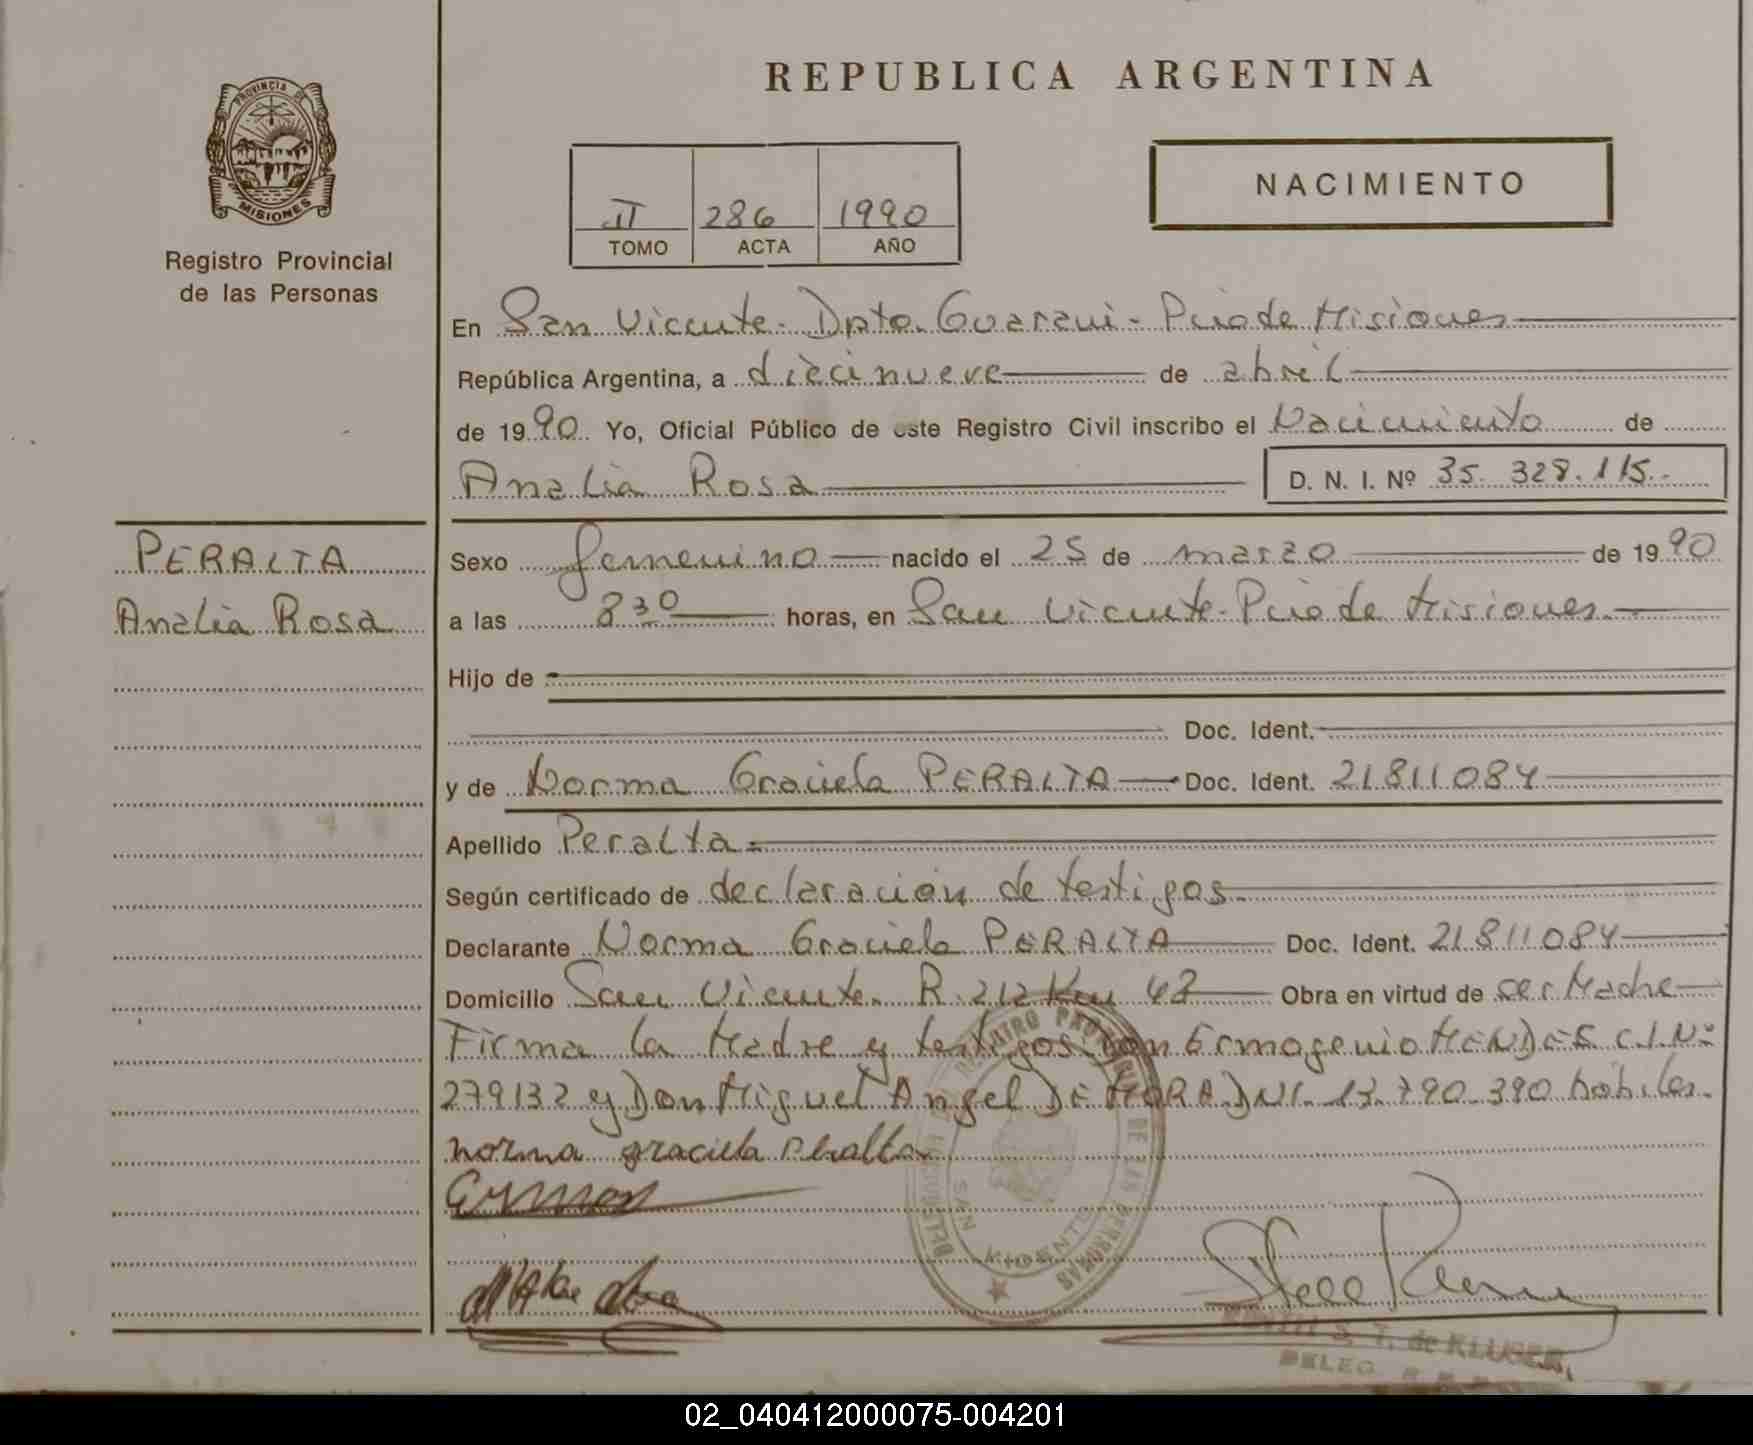 REPUBLICA ARGENTINA
PROVINCIA DE
MISIONES
Registro Provincial
de las Personas
NACIMIENTO
II 286 1990
TOMO ACTA AÑO
En San Vicente - Dpto. Guarani - Pcia de Misiones
República Argentina, a diecinueve de abril
de 1990. Yo, Oficial Público de este Registro Civil inscribo el Nacimiento de
Analia Rosa D. N. I. Nº 35.328.115.-
PERALTA
Analia Rosa
Sexo femenino nacido el 25 de marzo de 1990
a las 8 30 horas, en San Vicente - Pcia de Misiones.
Hijo de
Doc. Ident.
y de Norma Graciela PERALTA Doc. Ident. 21811084
Apellido Peralta
Según certificado de declaración de testigos
Declarante Norma Graciela PERALTA Doc. Ident. 21811084
Domicilio San Vicente. R. 212 Km 42 Obra en virtud de ser Madre
Firma la Madre y testigos Don Ermogenio MENDES C.I.Nº
279132 y Don Miguel Angel DE MORA DNI. 13.790.390 habiles.
norma graciela peralta
REGISTRO PROVINCIAL DE LAS PERSONAS
SAN VICENTE
S. T. de KLUGER
DELEG.
02_040412000075-004201